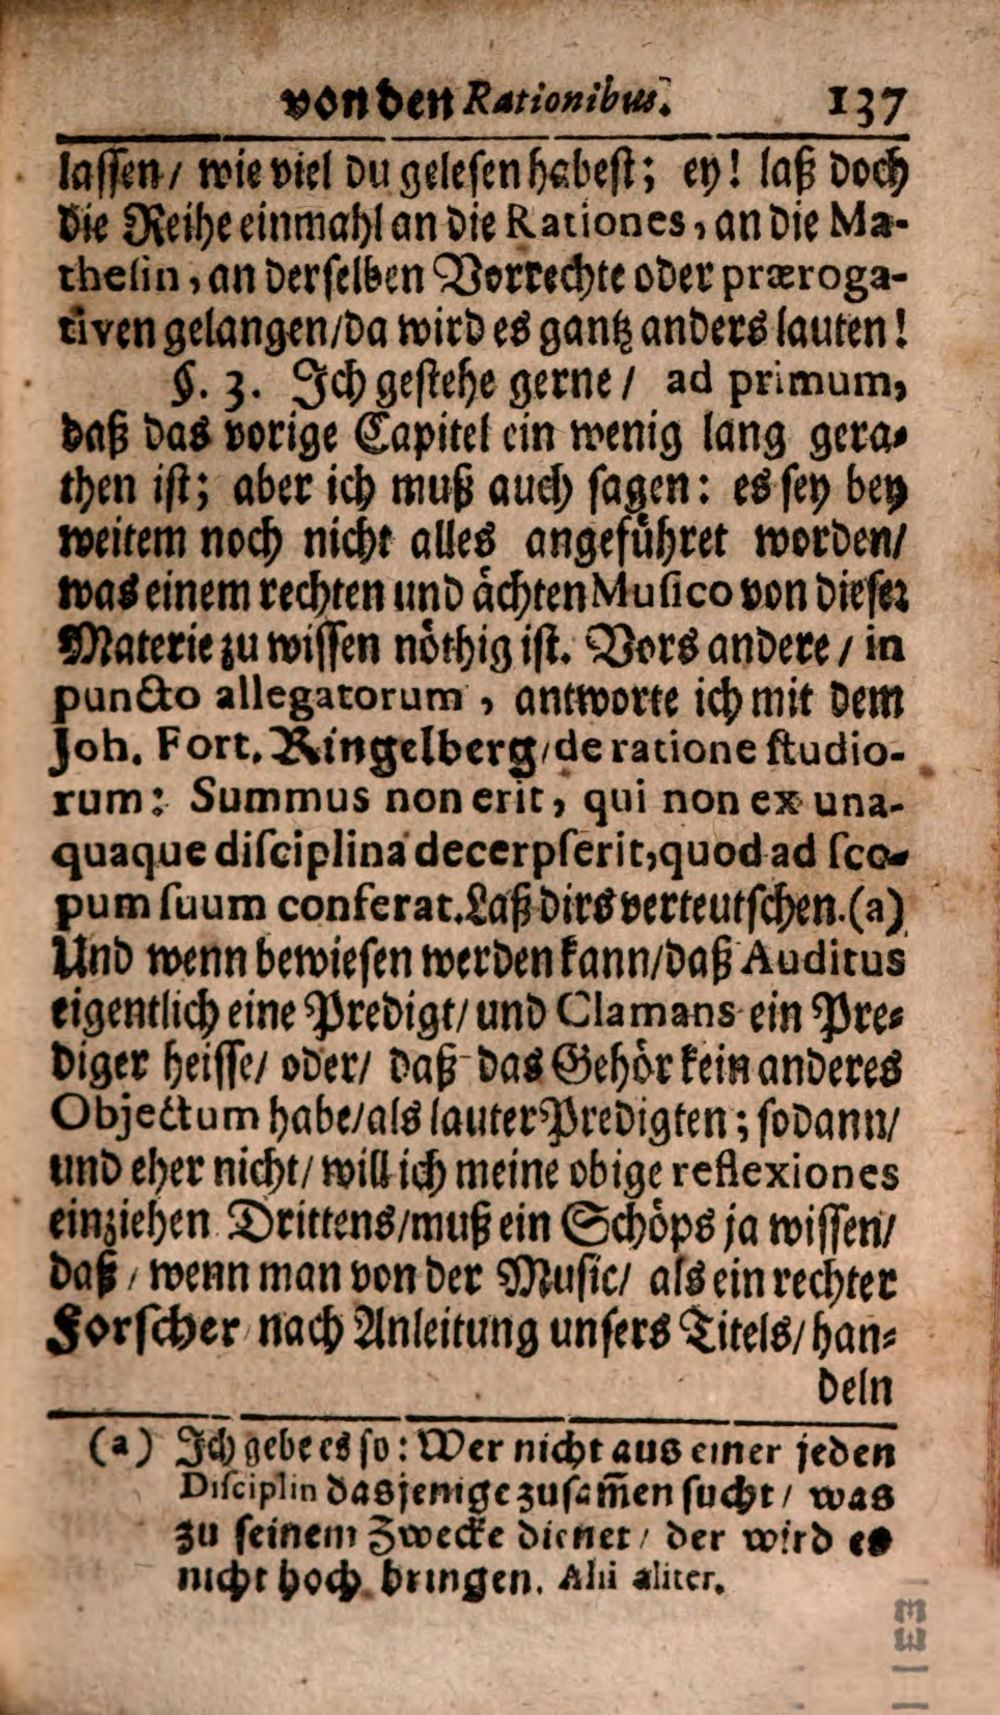 von den Rationibus. 137
lassen/ wie viel du gelesen habest; ey! laß doch
die Reihe einmahl an die Rationes, an die Ma-
thesin, an derselben Vorrechte oder præroga-
tiven gelangen/da wird es gantz anders lauten!
§. 3. Ich gestehe gerne / ad primum,
daß das vorige Capitel ein wenig lang gera-
then ist; aber ich muß auch sagen: es sey bey
weitem noch nicht alles angeführet worden/
was einem rechten und ächten Musico von dieser
Materie zu wissen nöthig ist. Vors andere / in
puncto allegatorum, antworte ich mit dem
Joh. Fort. Ringelberg/de ratione studio-
rum: Summus non erit, qui non ex una-
quaque disciplina decerpserit, quod ad sco-
pum suum conferat. Laß dirs verteutschen. (a)
Und wenn bewiesen werden kann/daß Auditus
eigentlich eine Predigt/ und Clamans ein Pre-
diger heisse/ oder/ daß das Gehör kein anderes
Objectum habe/als lauter Predigten; sodann/
und eher nicht/ will ich meine obige reflexiones
einziehen Drittens/muß ein Schöps ja wissen/
daß/ wenn man von der Music/ als ein rechter
Forscher nach Anleitung unsers Titels/ han-
deln
(a) Ich gebe es so: Wer nicht aus einer jeden
Disciplin dasjenige zusam̅en sucht/ was
zu seinem Zwecke dienet/ der wird es
nicht hoch bringen. Alii aliter.